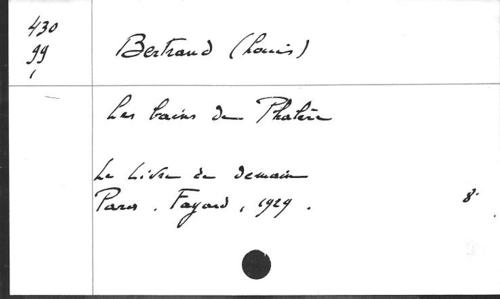 430
99
1
Bertrand (Louis)
Les bains de Phalère
Le Livre de demain
Paris. Fayard, 1929.
8°